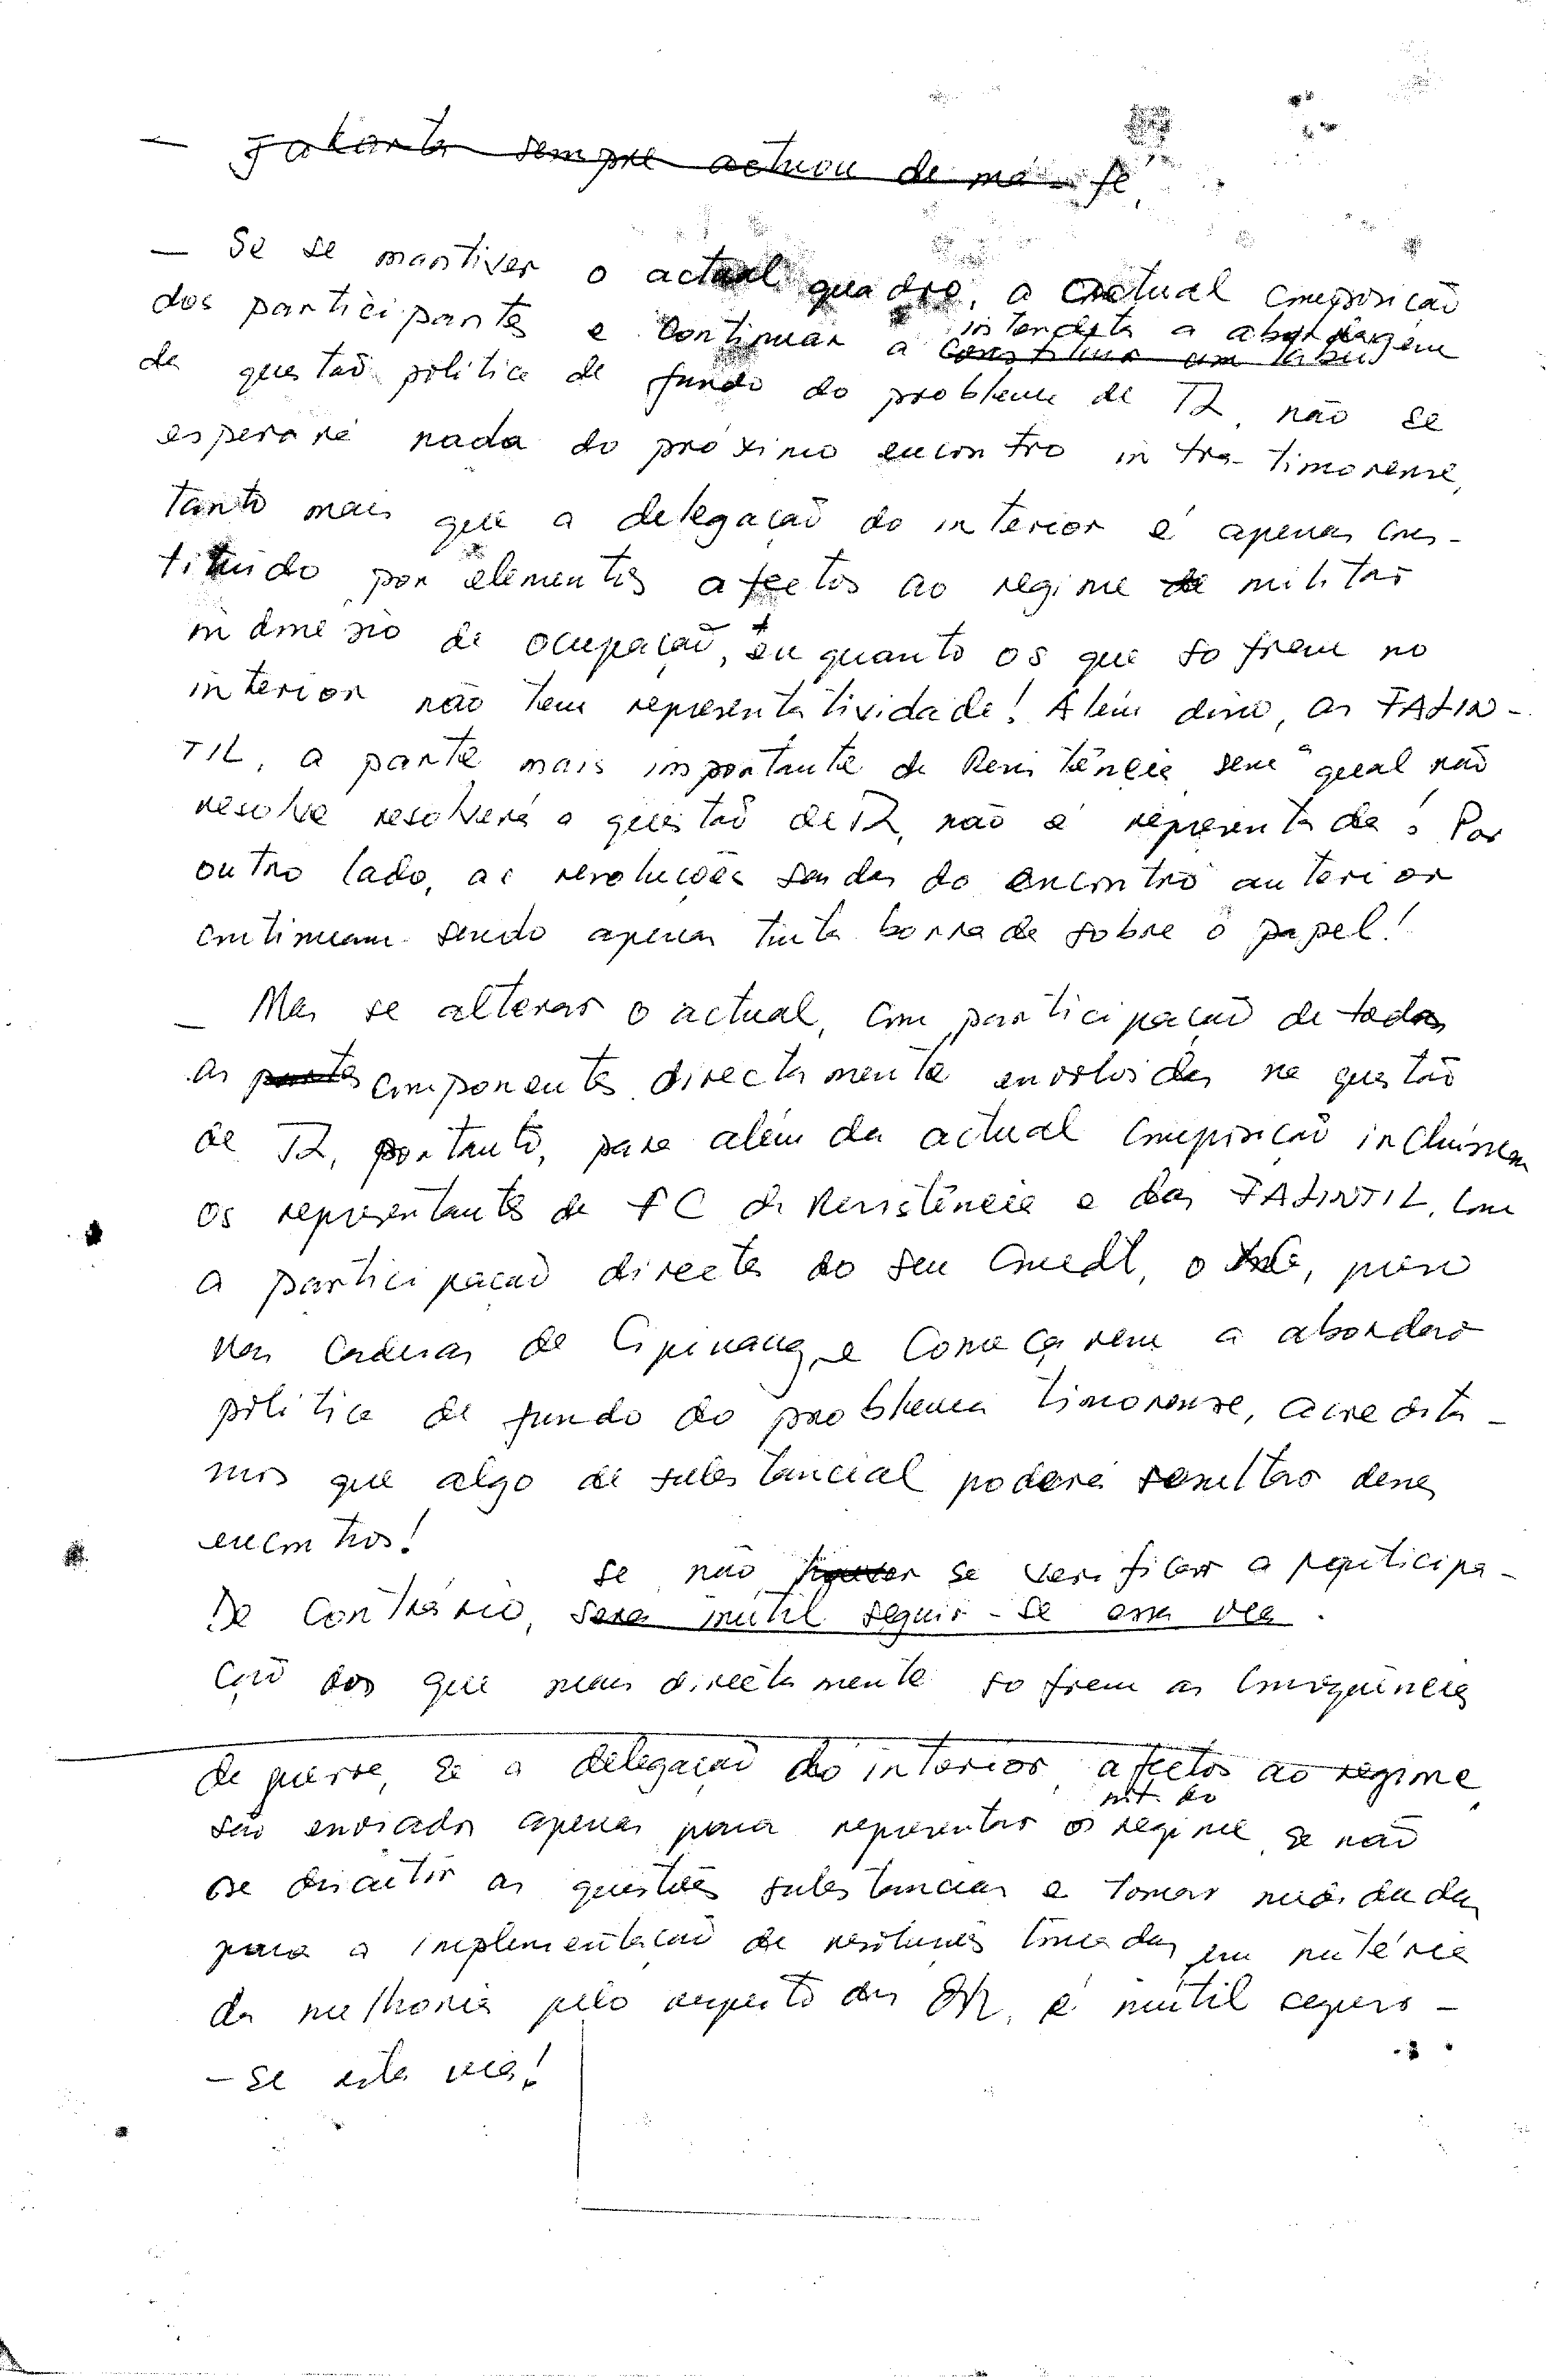 — Jakarta sempre actuou de má fé
— Se se mantiver o actual quadro, a actual composição
dos participantes e continuar a interdita a abordagem
constituir um tabu
da questão política de fundo do problema de TL, não se
esperará nada do próximo encontro intra-timorense,
tanto mais que a delegação do interior é apenas cons-
tituido por elementos afectos ao regime de militar
indonésio de ocupação, enquanto os que sofrem no
interior não tem representatividade! Além disso, as FALIN-
TIL, a parte mais importante da Resistência sem a qual não
resolve resolverá a questão de TL, não é representada! Por
outro lado, as resoluções saidas do encontro anterior
continuam sendo apenas tinta borrada sobre o papel!
— Mas se alterar o actual, com participação de todas
as partes componentes directamente envolvidas na questão
de TL, portanto, para além da actual composição incluissem
os representantes da FC da Resistência e das FALINTIL, com
a participação directa do seu Cmdt, o, preso
nas cadeias de Cipinang, e começarem a abordar
política de fundo do problema timorense, acredita-
mos que algo de substancial poderá resultar desses
encontros!
se não houver se verificar a participa-
De contrário, sera inútil seguir-se essa via.
ção dos que mais directamente sofrem as consequências
da guerra, se a delegação do interior afectos ao regime,
mt. do
são enviados apenas para representar o regime, se não
se discutir as questões substanciais e tomar medidas
para a implementação de resoluções tomadas em matéria
da melhoria pelo respeito dos DH, é inútil seguir-
-se esta via!